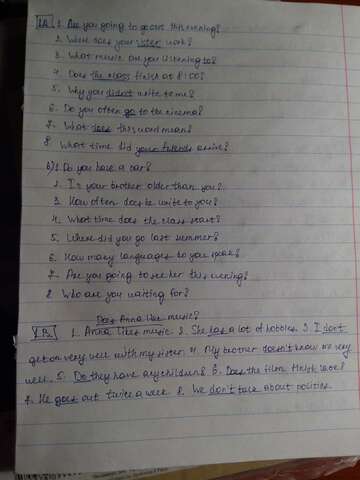 1A 1. Are you going to go out this evening?
2. Where does your sister work?
3. What music are you listening to?
4. Does the class finish at 8:00?
5. Why you didn't write to me?
6. Do you often go to the cinema?
7. What does this word mean?
8. What time did your friends arrive?
b) 1. Do you have a car?
2. Is your brother older than you?
3. How often does he write to you?
4. What time does the class start?
5. Where did you go last summer?
6. How many languages do you speak?
7. Are you going to see her this evening?
8. Who are you waiting for?
Does Anna like music?
1B. 1. Anna likes music. 2. She has a lot of hobbies. 3. I don't
get on very well with my sister. 4. My brother doesn't know me very
well. 5. Do they have any children? 6. Does the film finish late?
7. He goes out twice a week. 8. We don't talk about politics.